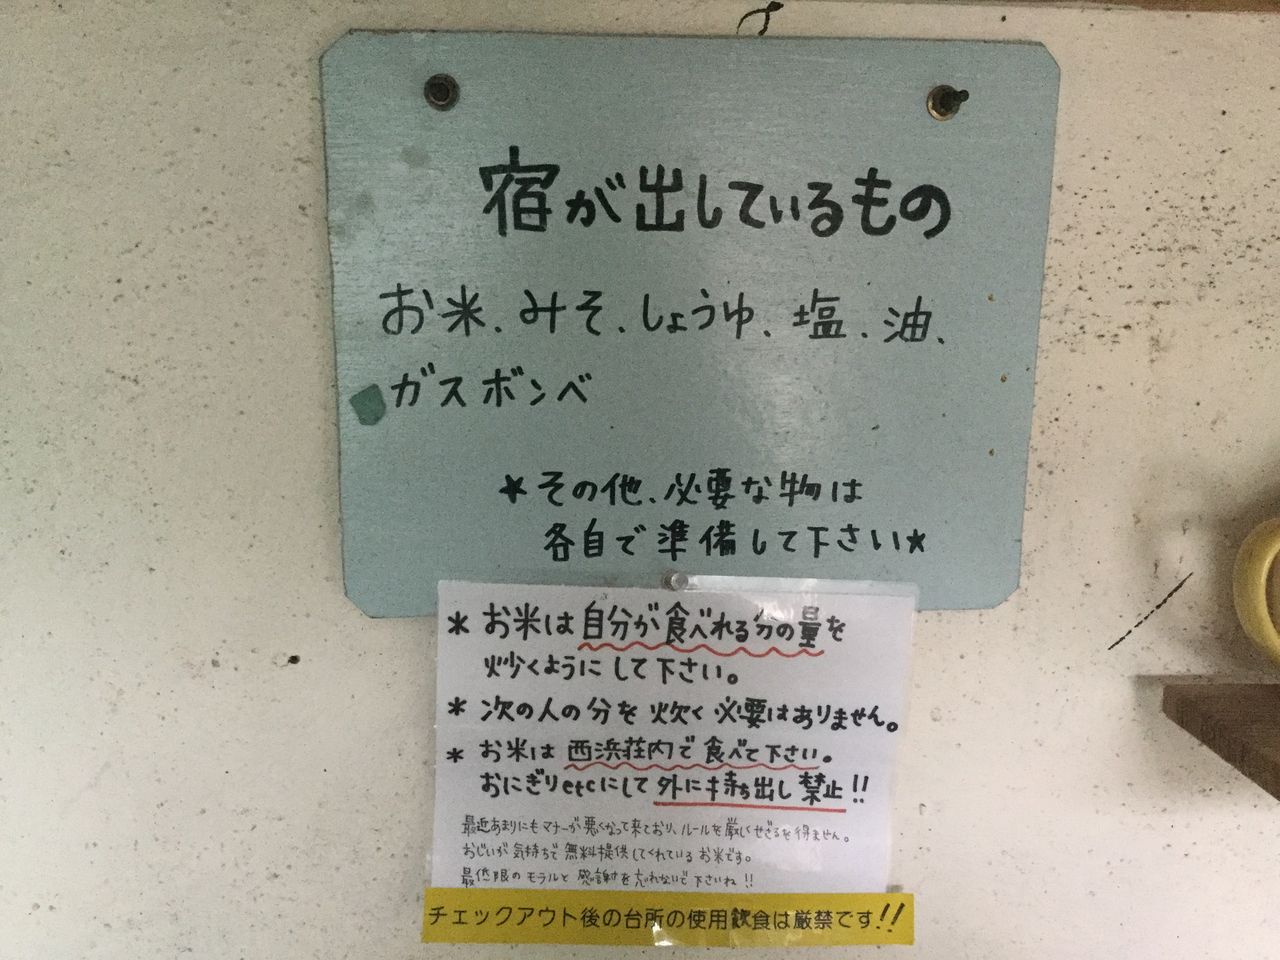 宿が出しているもの
お米、みそ、しょうゆ、塩、油、
ガスボンベ
★その他、必要な物は
各自で準備して下さい★
＊お米は自分が食べれる分の量を
炒くようにして下さい。
＊次の人の分を炊く必要はありません。
＊お米は西浜荘内で食べて下さい。
おにぎりetcにして外に持ち出し禁止!!
最近あまりにもマナーが悪くなって来ており、ルールを厳しくせざるを得ません。
おじいが気持ちで無料提供してくれているお米です。
最低限のモラルと感謝を忘れないで下さいね!!
チェックアウト後の台所の使用飲食は厳禁です!!